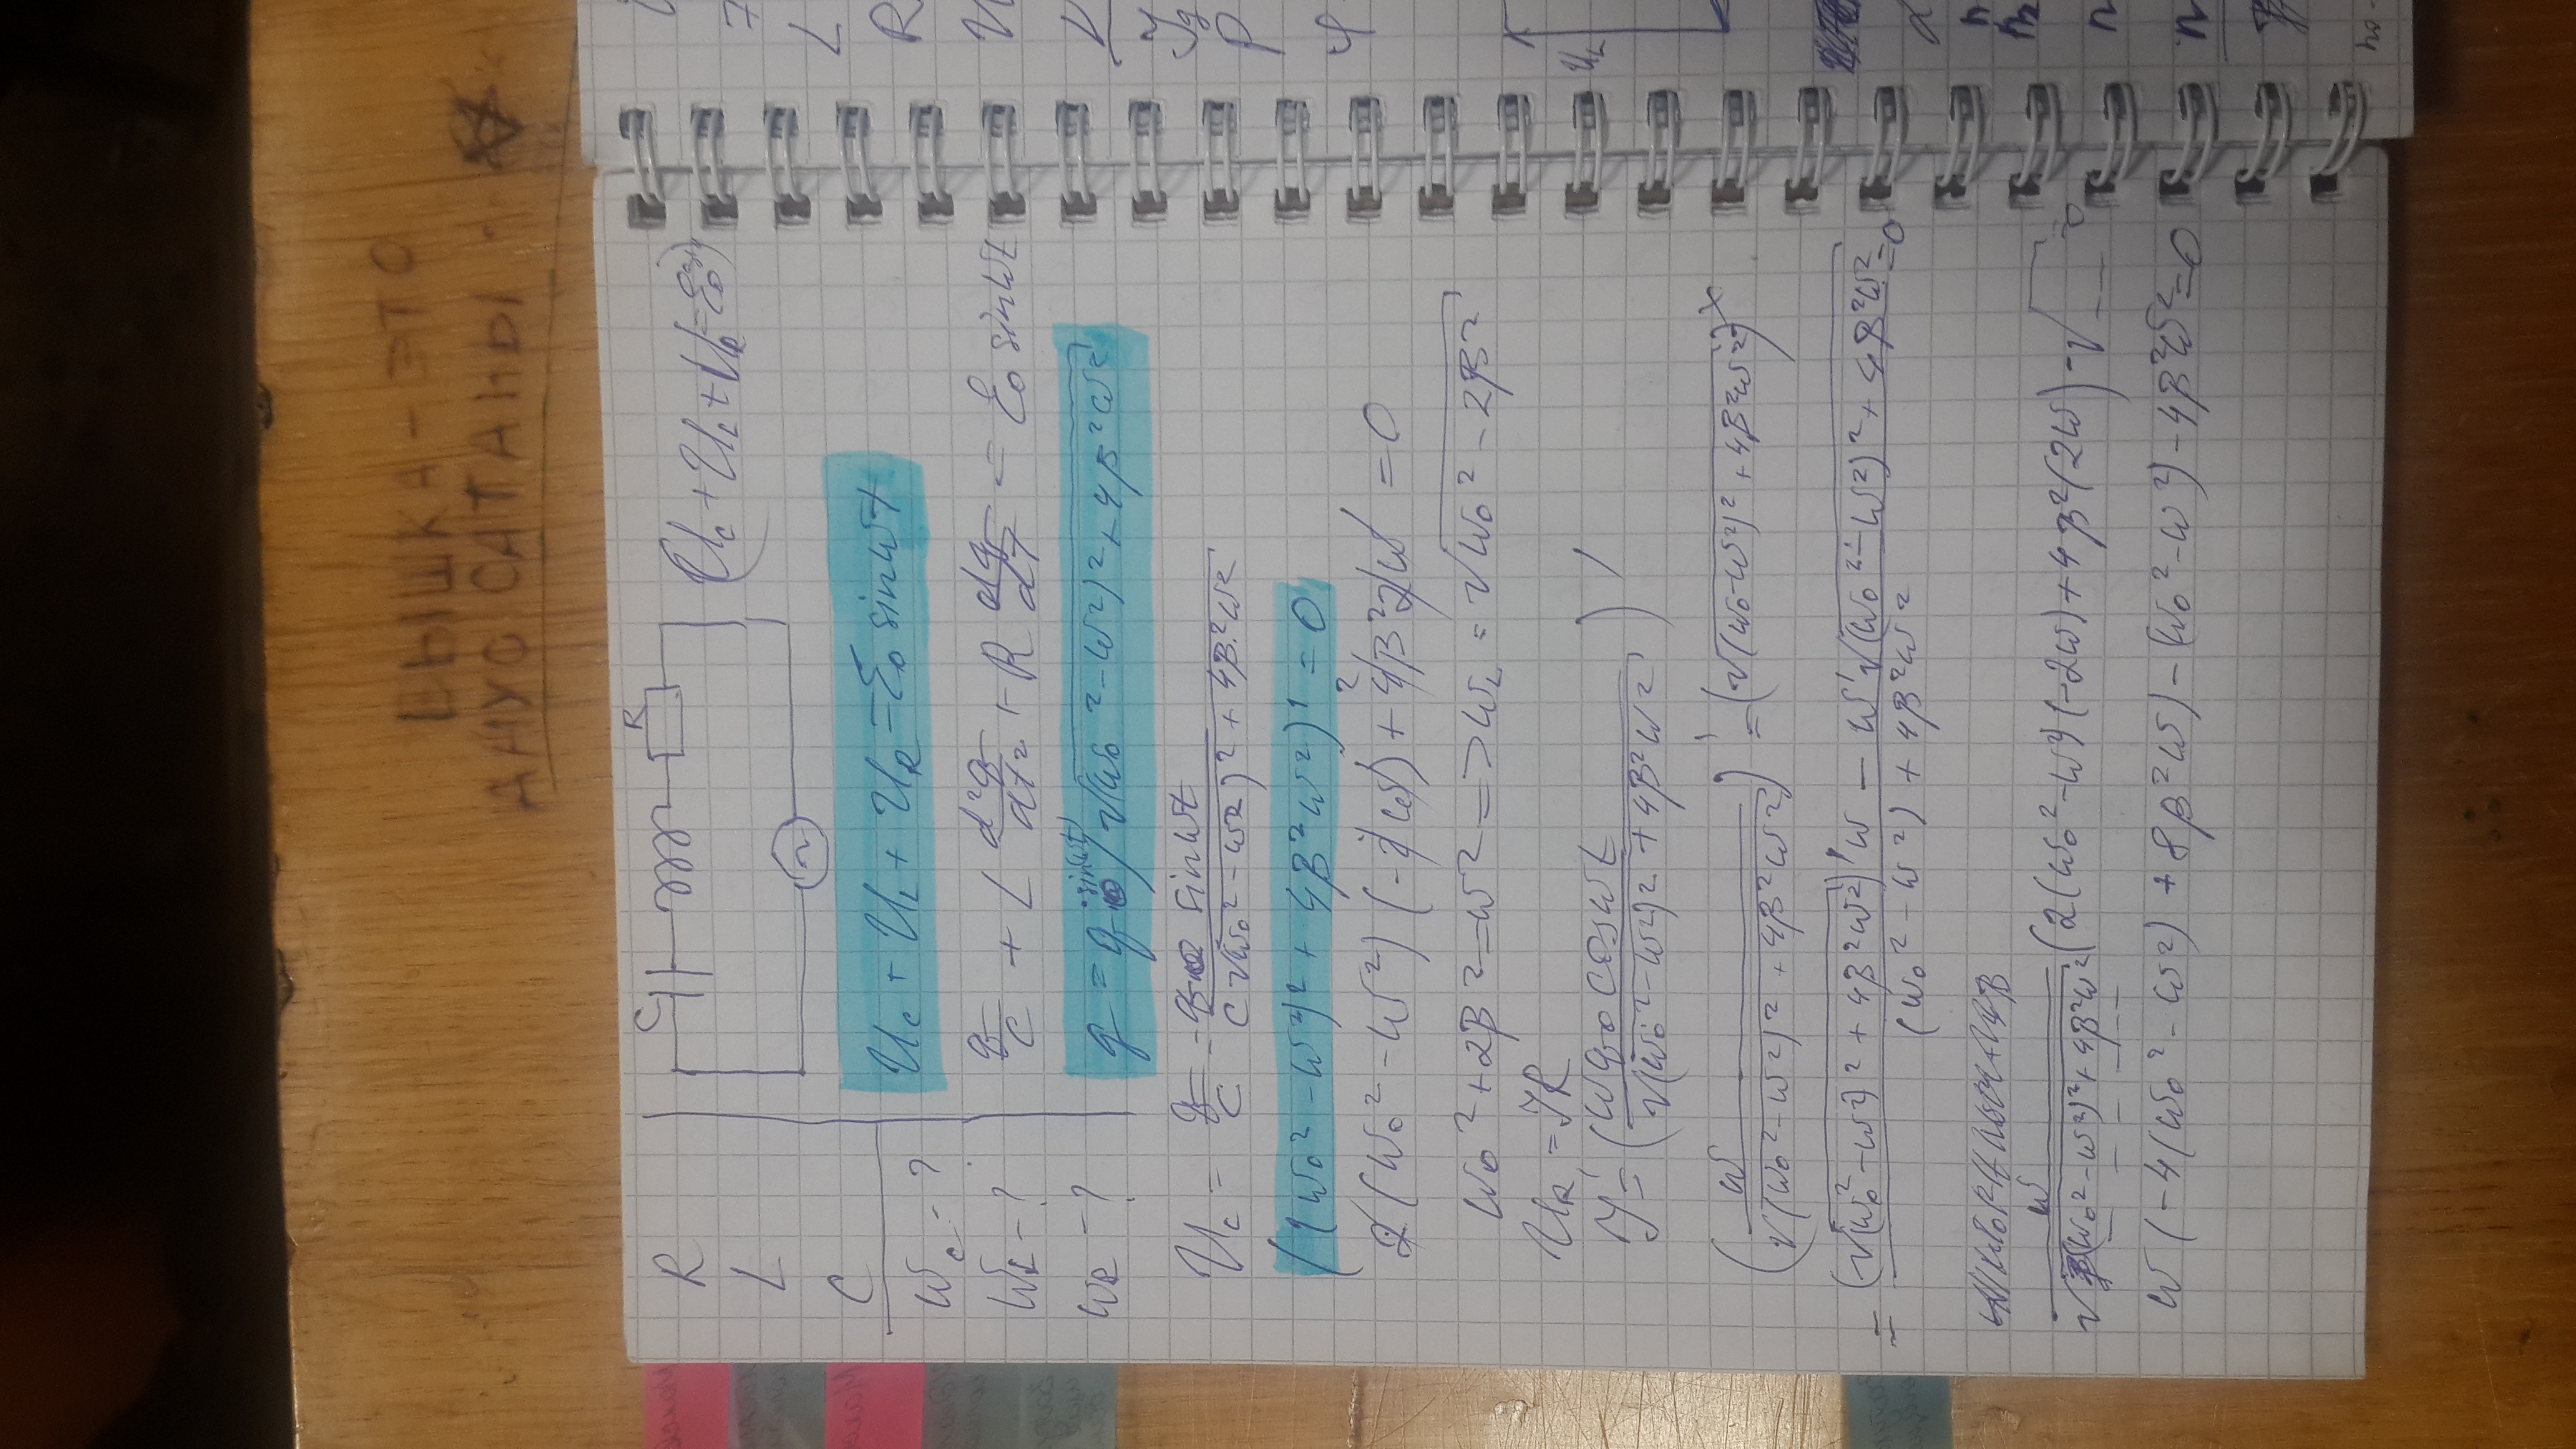 ВЫШКА - ЭТО
АНУС САТАНЫ
R
L
C
ω_c - ?
ω_L - ?
ω_R - ?
C
R
(U_c + U_L + U_R = ε_0
U_c + U_L + U_R = ε_0 sinωt
q/C + L d²q/dt² + R dq/dt = ε_0 sinωt
q = q_0 · sin(ωt) / √(ω_0² - ω²)² + 4β²ω²
U_c = q/C = q_0 sinωt / C√(ω_0² - ω²)² + 4β²ω²
((ω_0² - ω²)² + 4β²ω²)' = 0
2(ω_0² - ω²)(-2ω) + 4β²2ω = 0
2
ω_0² + 2β² = ω² => ω_L = √ω_0² - 2β²
U_R = IR
I' = (ωq_0 cosωt / √(ω_0² - ω²)² + 4β²ω²)'
(ω / √(ω_0² - ω²)² + 4β²ω²)' = (√(ω_0 - ω²)² + 4β²ω²)
= (√(ω_0² - ω²)² + 4β²ω²)'ω - ω'√(ω_0² - ω²)² + 4β²ω² / (ω_0² - ω²) + 4β²ω² = 0
ω / √(ω_0² - ω²)² + 4β²ω² (2(ω_0² - ω²)(-2ω) + 4β²(2ω) - √ = 0
ω(-4(ω_0² - ω²) + 8β²ω) - (ω_0² - ω²) - 4β²ω² = 0
L
R
U
I_g
P
φ
U_L
α
n